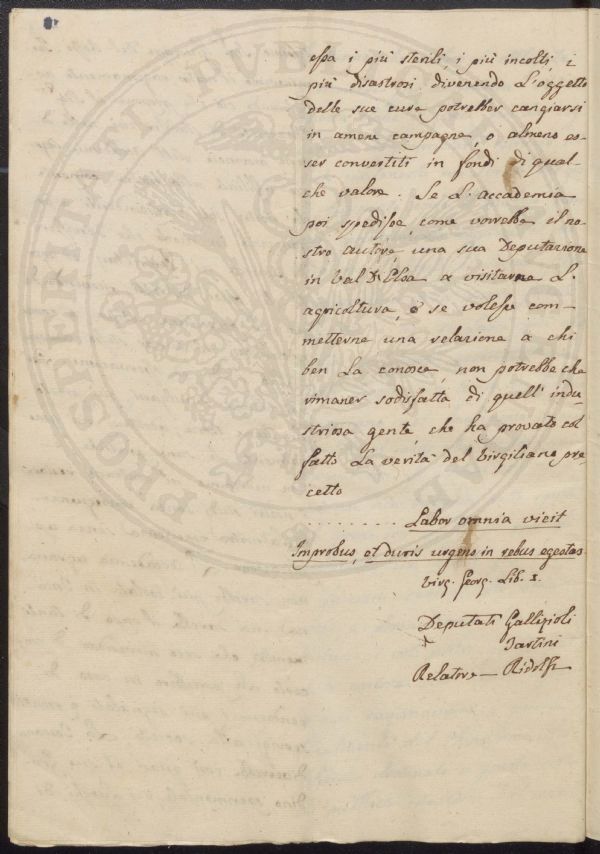 essa i più sterili, i più incolti, i
più disastrosi divenendo l'oggetto
delle sue cure potrebber cangiarsi
in amene campagne, o almeno es-
ser convertiti in fondi di qual-
che valore. Se l'accademia
poi spedisse, come vorrebbe il no-
stro autore, una sua Deputazione
in Val D'Elsa a visitarne l'
agricoltura, o se volesse com-
metterne una relazione a chi
ben la conosce, non potrebbe che
rimaner sodisfatta di quell'indu-
striosa gente, che ha provato col
fatto la verità del Virgiliano pre-
cetto
. . . . . . . . . Labor omnia vicit
Improbus, et duris urgens in rebus egestas
Virg. Georg. Lib. 1.
Deputati Gallizioli
Tartini
Relatore — Ridolfi
PROSPERITATI